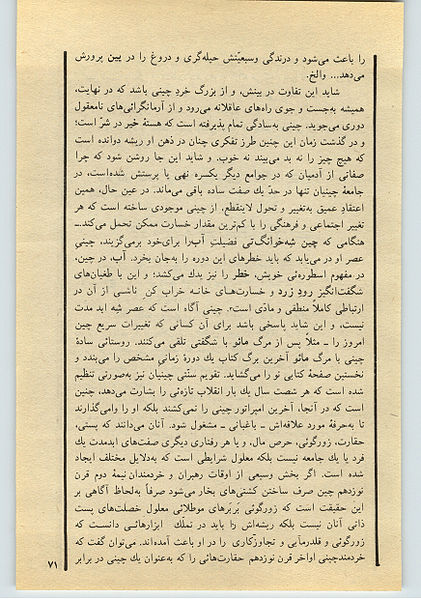 را باعث می‌شود و درندگی وسبعیّتش حیله‌گری و دروغ را در پین پرورش
می‌دهد... والخ.
شاید این تفاوت در بینش، و از بزرگ خردِ چینی باشد که در نهایت،
همیشه به‌جست و جوی راه‌های عاقلانه می‌رود و از آرمانگرائی‌های نامعقول
دوری می‌جوید. چینی به‌سادگی تمام پذیرفته است که هستهٔ خیر در شرّ است؛
و در گذشت زمان این چنین طرز تفکری چنان در ذهن او ریشه دوانده است
که هیچ چیز را نه بد می‌بیند نه خوب. و شاید این جا روشن شود که چرا
صفاتی از آدمیان که در جوامع دیگر یکسره نهی یا پرستش شده‌است، در
جامعهٔ چینیان تنها در حدّ یك صفت ساده باقی می‌ماند. در عین حال، همین
اعتقادِ عمیق به‌تغییر و تحول لاینقطع، از چینی موجودی ساخته است که هر
تغییر اجتماعی و فرهنگی را با کم‌ترین مقدار خسارت ممکن تحمل می‌کند.ـ
هنگامی که چین شِه‌خوانگ‌تی فضیلتِ آب‌را برای‌خود برمی‌گزیند، چینیِ
عصر او در می‌یابد که باید خطرهای این دوره را به‌جان بخرد. آب، در چین،
در مفهوم اسطوره‌ئی خویش، خطر را نیز یدك می‌کشد؛ و این با طغیان‌های
شگفت‌انگیز رودِ زرد و خسارت‌های خانه خراب کن ناشی از آن در
ارتباطی کاملاً منطقی و مادّی است۲. چینی آگاه است که عصر شِه ابد مدت
نیست، و این شاید پاسخی باشد برای آن کسانی که تغییرات سریع چین
امروز را ـ مثلاً پس از مرگ مائو با شگفتی تلقی می‌کنند. روستائی سادهٔ
چینی با مرگ مائو آخرین برگ کتاب یك دورهٔ زمانی مشخص را می‌بندد و
نخستین صفحهٔ کتابی نو را می‌گشاید. تقویم سنّتی چینیان نیز به‌صورتی تنظیم
شده است که هر شصت سال یك بار انقلاب تازه‌ئی را بشارت می‌دهد، چنین
است که در آنجا، آخرین امپراتور چینی را نمی‌کشند بلکه او را وامی‌گذارند
تا به‌حرفه مورد علاقه‌اش ـ باغبانی ـ مشغول شود. آنان می‌دانند که پستی،
حقارت، زورگوئی، حرص مال، و یا هر رفتاری دیگری صفت‌های ابدمدت یك
فرد یا یك جامعه نیست بلکه معلول شرایطی است که به‌دلایل مختلف ایجاد
شده است. اگر بخش وسیعی از اوقات رهبران و خردمندان نیمهٔ دوم قرن
نوزدهم چین صرف ساختن کشتی‌های بخار می‌شود صرفاً به‌لحاظ آگاهی بر
این حقیقت است که زورگوئی بَربَرهای موطلائی معلول خصلت‌های پست
ذاتی آنان نیست بلکه ریشه‌اش را باید در تملّك ابزارهائی دانست که
زورگوئی و قلدرمآبی و تجاوزکاری را در او باعث آمده‌اند. می‌توان گفت که
خردمندچینی اواخر قرن نوزدهم حقارت‌هائی را که به‌عنوان یك چینی در برابر
۷۱